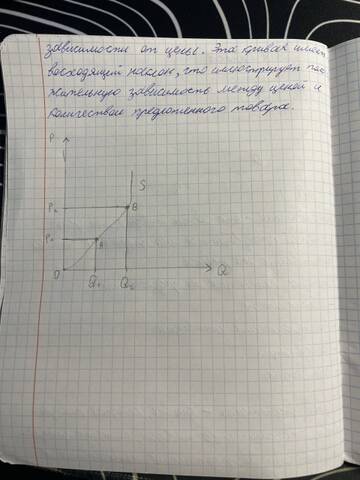 зависимости от цены. Эта кривая имеет
восходящий наклон, что иллюстрирует поло
жительную зависимость между ценой и
количеством предложенного товара.
P
S
P₂
B
P₁
A
O
Q₁
Q₂
Q